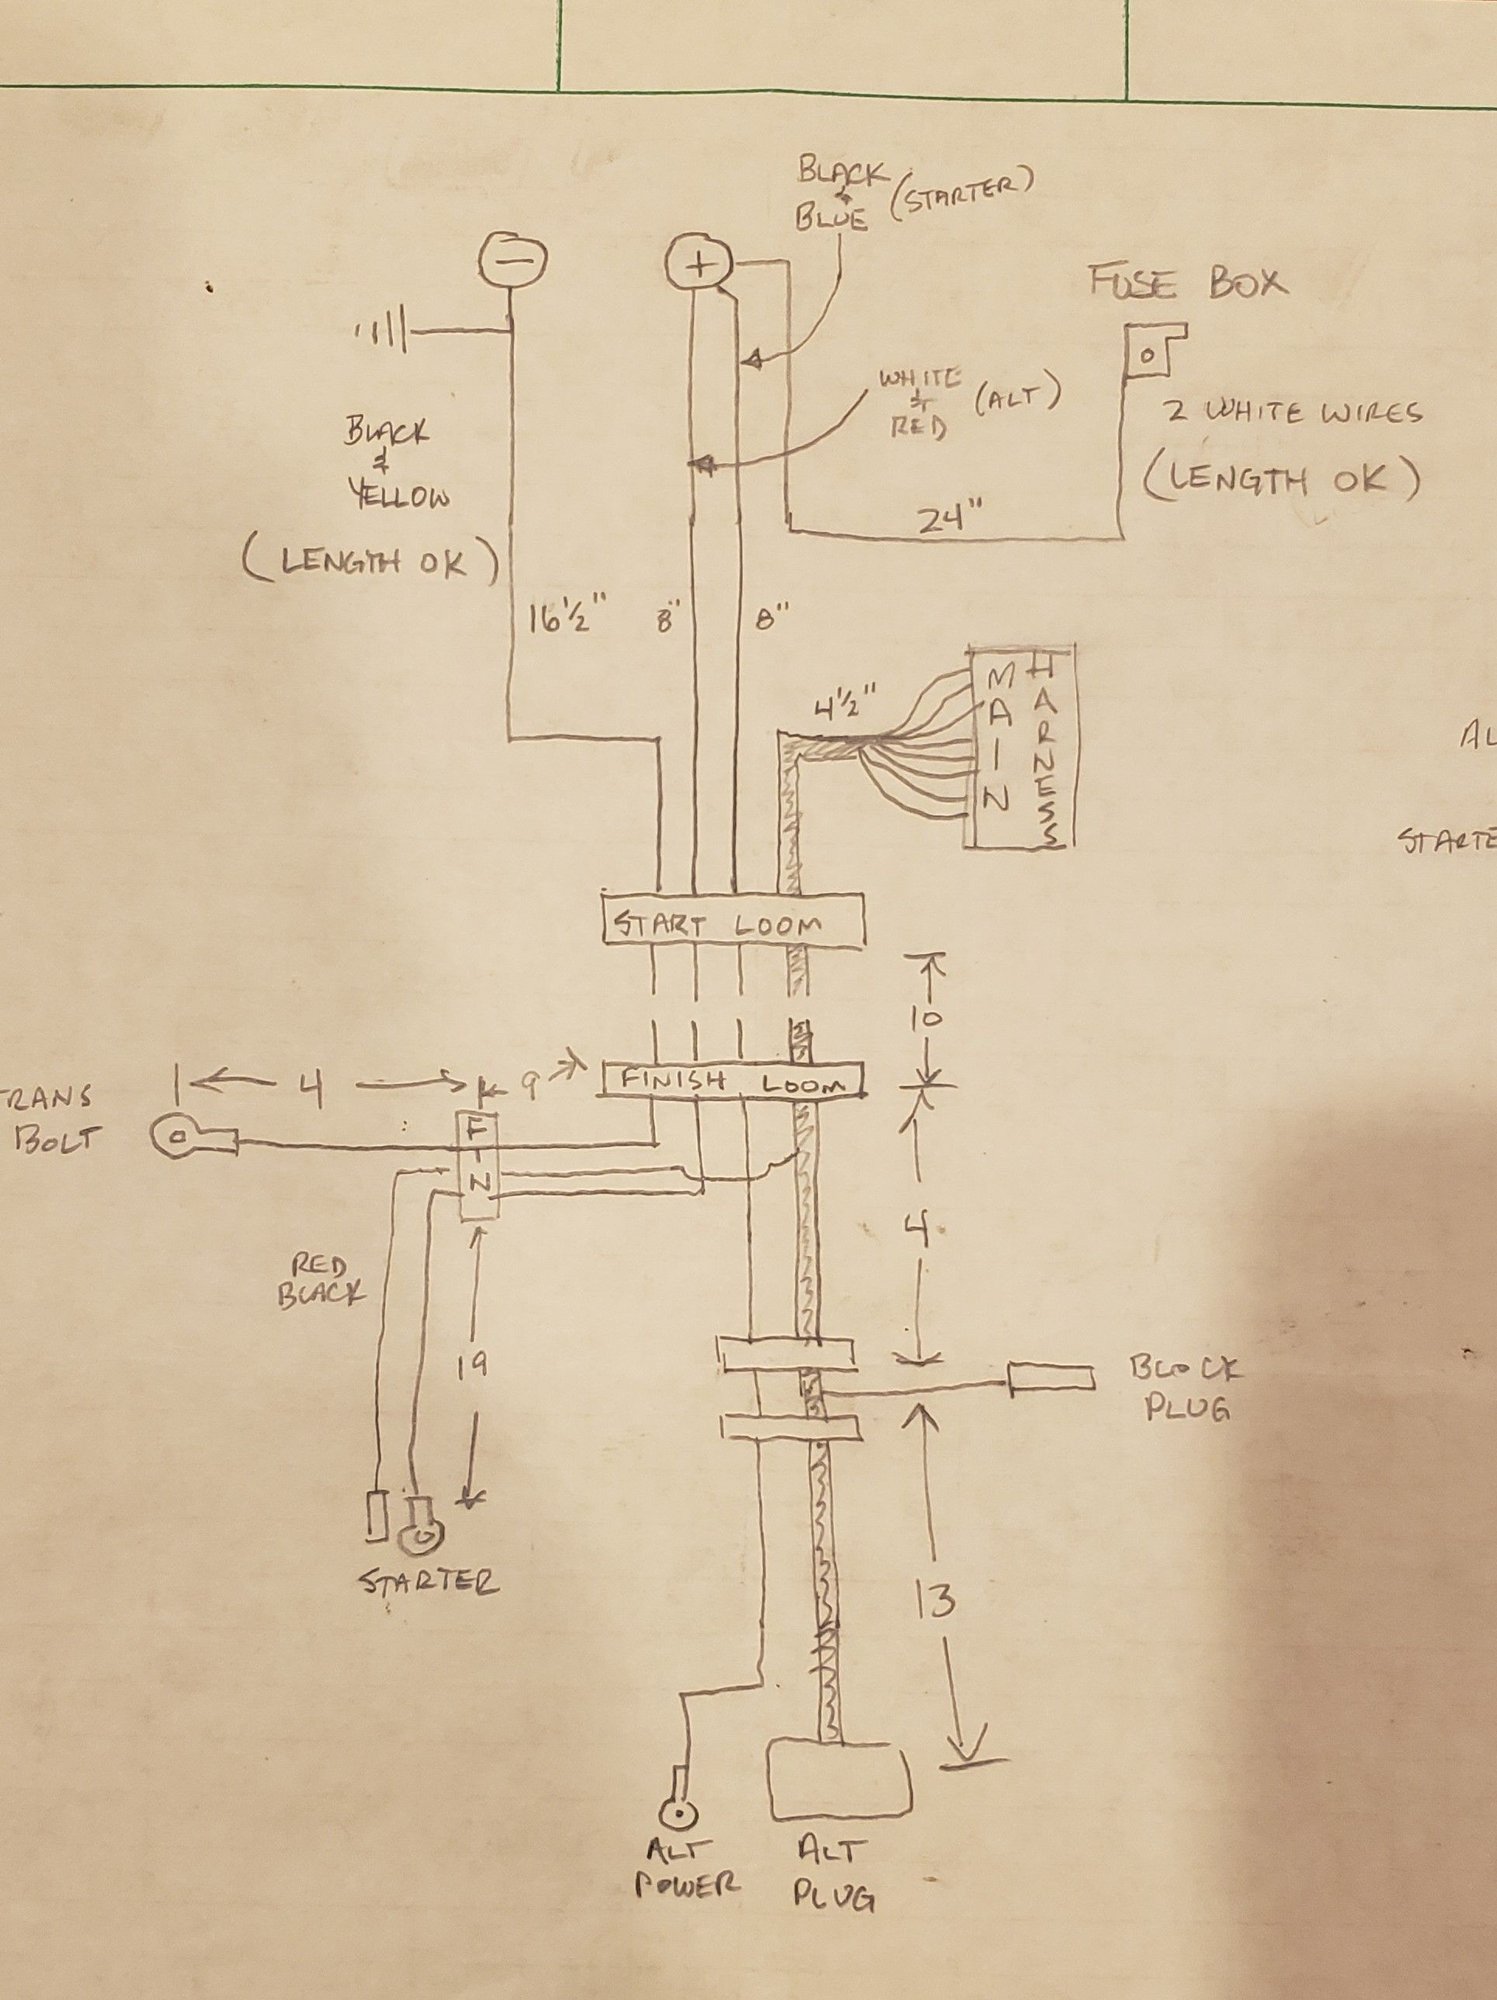 BLACK
&
BLUE
(STARTER)
−
+
FUSE BOX
WHITE
&
RED
(ALT)
2 WHITE WIRES
(LENGTH OK)
BLACK
&
YELLOW
(LENGTH OK)
24"
16½"
8"
8"
4½"
MAIN
HARNESS
AL
STARTE
START LOOM
10
FINISH LOOM
4
9
TRANS
BOLT
FIN
4
RED
BLACK
19
BLOCK
PLUG
STARTER
13
ALT
POWER
ALT
PLUG